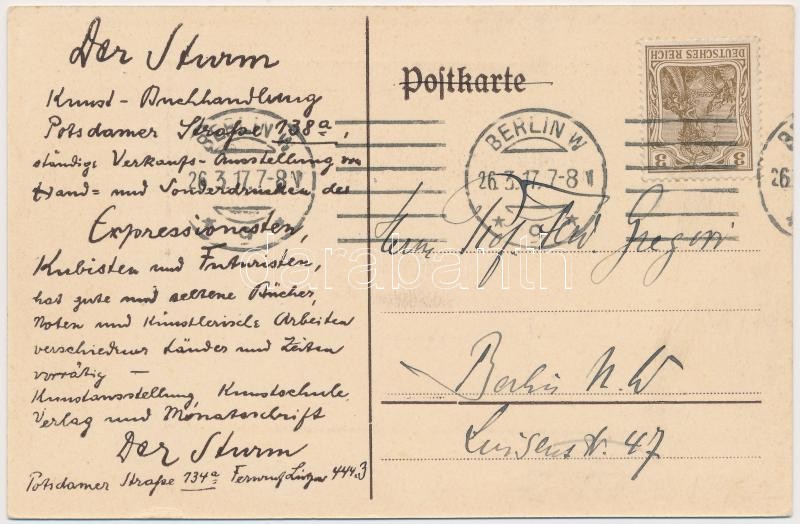 Der Sturm
Kunst - Buchhandlung
Potsdamer Straße 138a,
ständige Verkaufs-Ausstellung von
Hand- und Sonderdrucken der
Expressionisten,
Kubisten und Futuristen,
hat gute und seltene Bücher,
Noten und Künstlerische Arbeiten
verschiedner Länder und Zeiten
vorrätig —
Kunstausstellung, Kunstschule,
Verlag und Monatsschrift
Der Sturm
Potsdamer Straße 134a Fernruf Lützow 4443
Postkarte
DEUTSCHES REICH
3 3
BERLIN W
26.3.17.7-8V
* 9 *
BERLIN W
26.3.17.7-8V
* 9 *
26
Herrn Prof. Gregori
Berlin N.W
Luisenstr. 47
darabanth